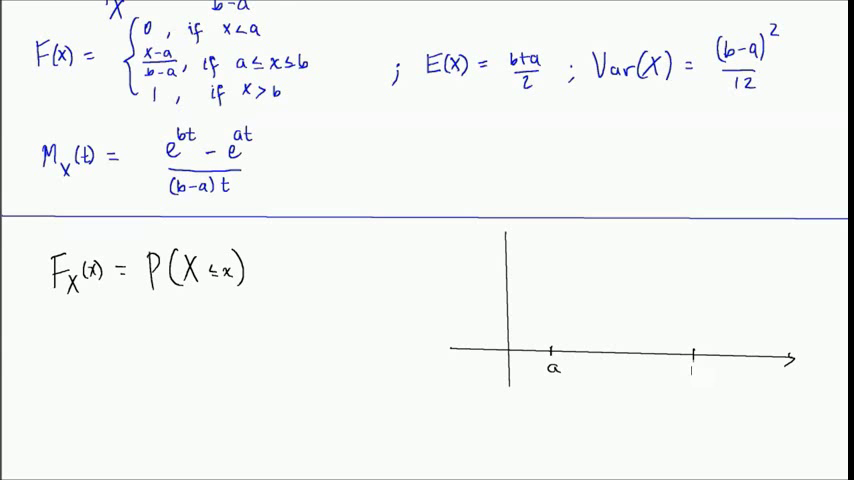 X b-a
F(x) = { 0 , if x<a
x-a/b-a , if a≤x≤b ; E(X) = b+a/2 ; Var(X) = (b-a)²/12
1 , if x>b
M_X(t) = e^bt - e^at / (b-a)t
F_X(x) = P(X≤x)
a